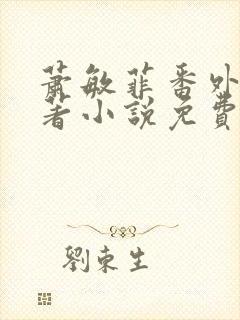 蕭敏菲番外
著小說免費
劉東生